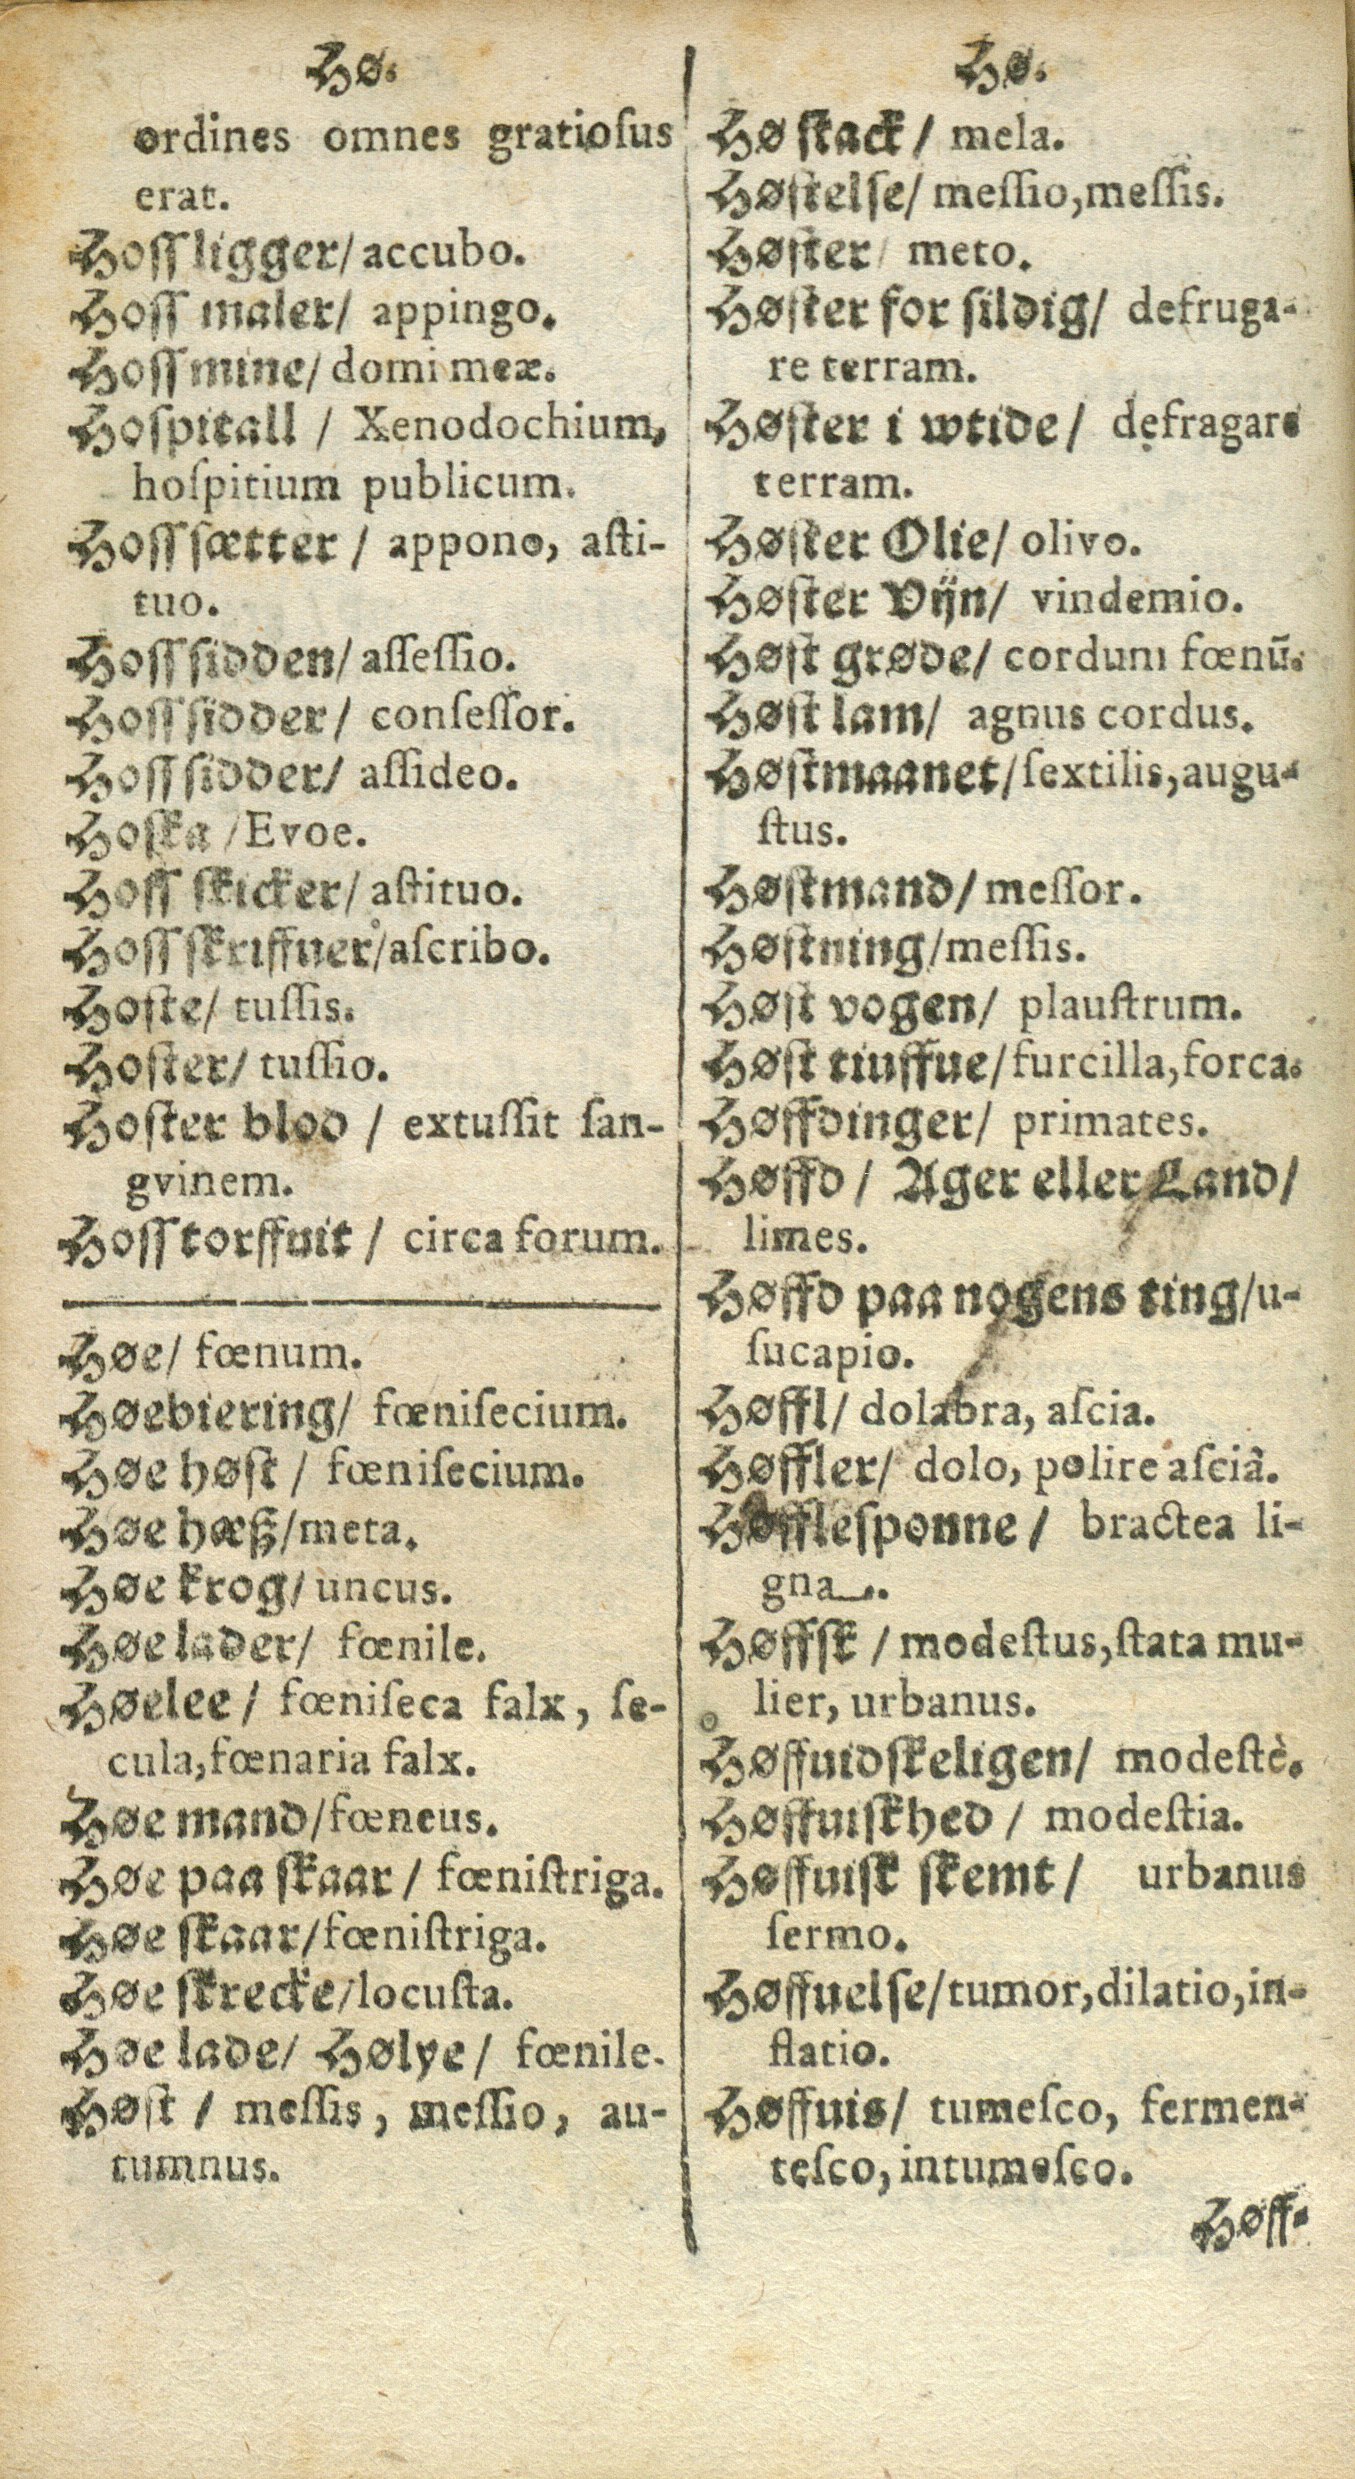 Hø.
ordines omnes gratioſus
erat.
Hoſſ ligger/ accubo.
Hoſſ maler/ appingo.
Hoſſ mine/ domi meæ.
Hoſpitall / Xenodochium,
hoſpitium publicum.
Hoſſ ſætter / appono, aſti-
tuo.
Hoſſ ſidden/ aſſeſſio.
Hoſſ ſidder/ conſeſſor.
Hoſſ ſidder/ aſſideo.
Hoſka /Evoe.
Hoſſ ſkicker/ aſtituo.
Hoſſ ſkriffuer/aſcribo.
Hoſte/ tuſſis.
Hoſter/ tuſſio.
Hoſter blod / extuſſit ſan-
gvinem.
Hoſſ torffuit / circa forum.
Høe/ fœnum.
Høebiering/ fœniſecium.
Høe høſt / fœniſecium.
Høe hæß/meta.
Høe krog/ uncus.
Høe lader/ fœnile.
Høelee / fœniſeca falx, ſe-
cula,fœnaria falx.
Høe mand/fœneus.
Høe paa ſkaar / fœniſtriga.
Høe ſkaar/fœniſtriga.
Høe ſkrecke/locuſta.
Høe lade/ Hølye/ fœnile.
Høſt / meſſis, meſſio, au-
tumnus.
Hø.
Hø ſtack / mela.
Høſtelſe/ meſſio,meſſis.
Høſter/ meto.
Høſter for ſildig/ defruga-
re terram.
Høſter i wtide/ defragare
terram.
Høſter Olie/ olivo.
Høſter Vijn/ vindemio.
Høſt grøde/ cordum fœnū.
Høſt lam/ agnus cordus.
Høſtmaanet/ſextilis,augu-
ſtus.
Høſtmand/ meſſor.
Høſtning/meſſis.
Høſt vogen/ plauſtrum.
Høſt tiuffue/furcilla,forca.
Høffdinger/ primates.
Høffd / Ager eller Land/
limes.
Høffd paa nogens ting/u-
ſucapio.
Høffl/ dolabra, aſcia.
Høffler/ dolo, polire aſciâ.
Høffleſponne / bractea li-
gna_.
Høffſk / modeſtus,ſtata mu-
lier, urbanus.
Høffuidſkeligen/ modeſtè.
Høffuiſkhed / modeſtia.
Høffuiſk ſkemt / urbanus
ſermo.
Høffuelſe/tumor,dilatio,in-
flatio.
Høffuis/ tumeſco, fermen-
teſco, intumeſco.
Høff-